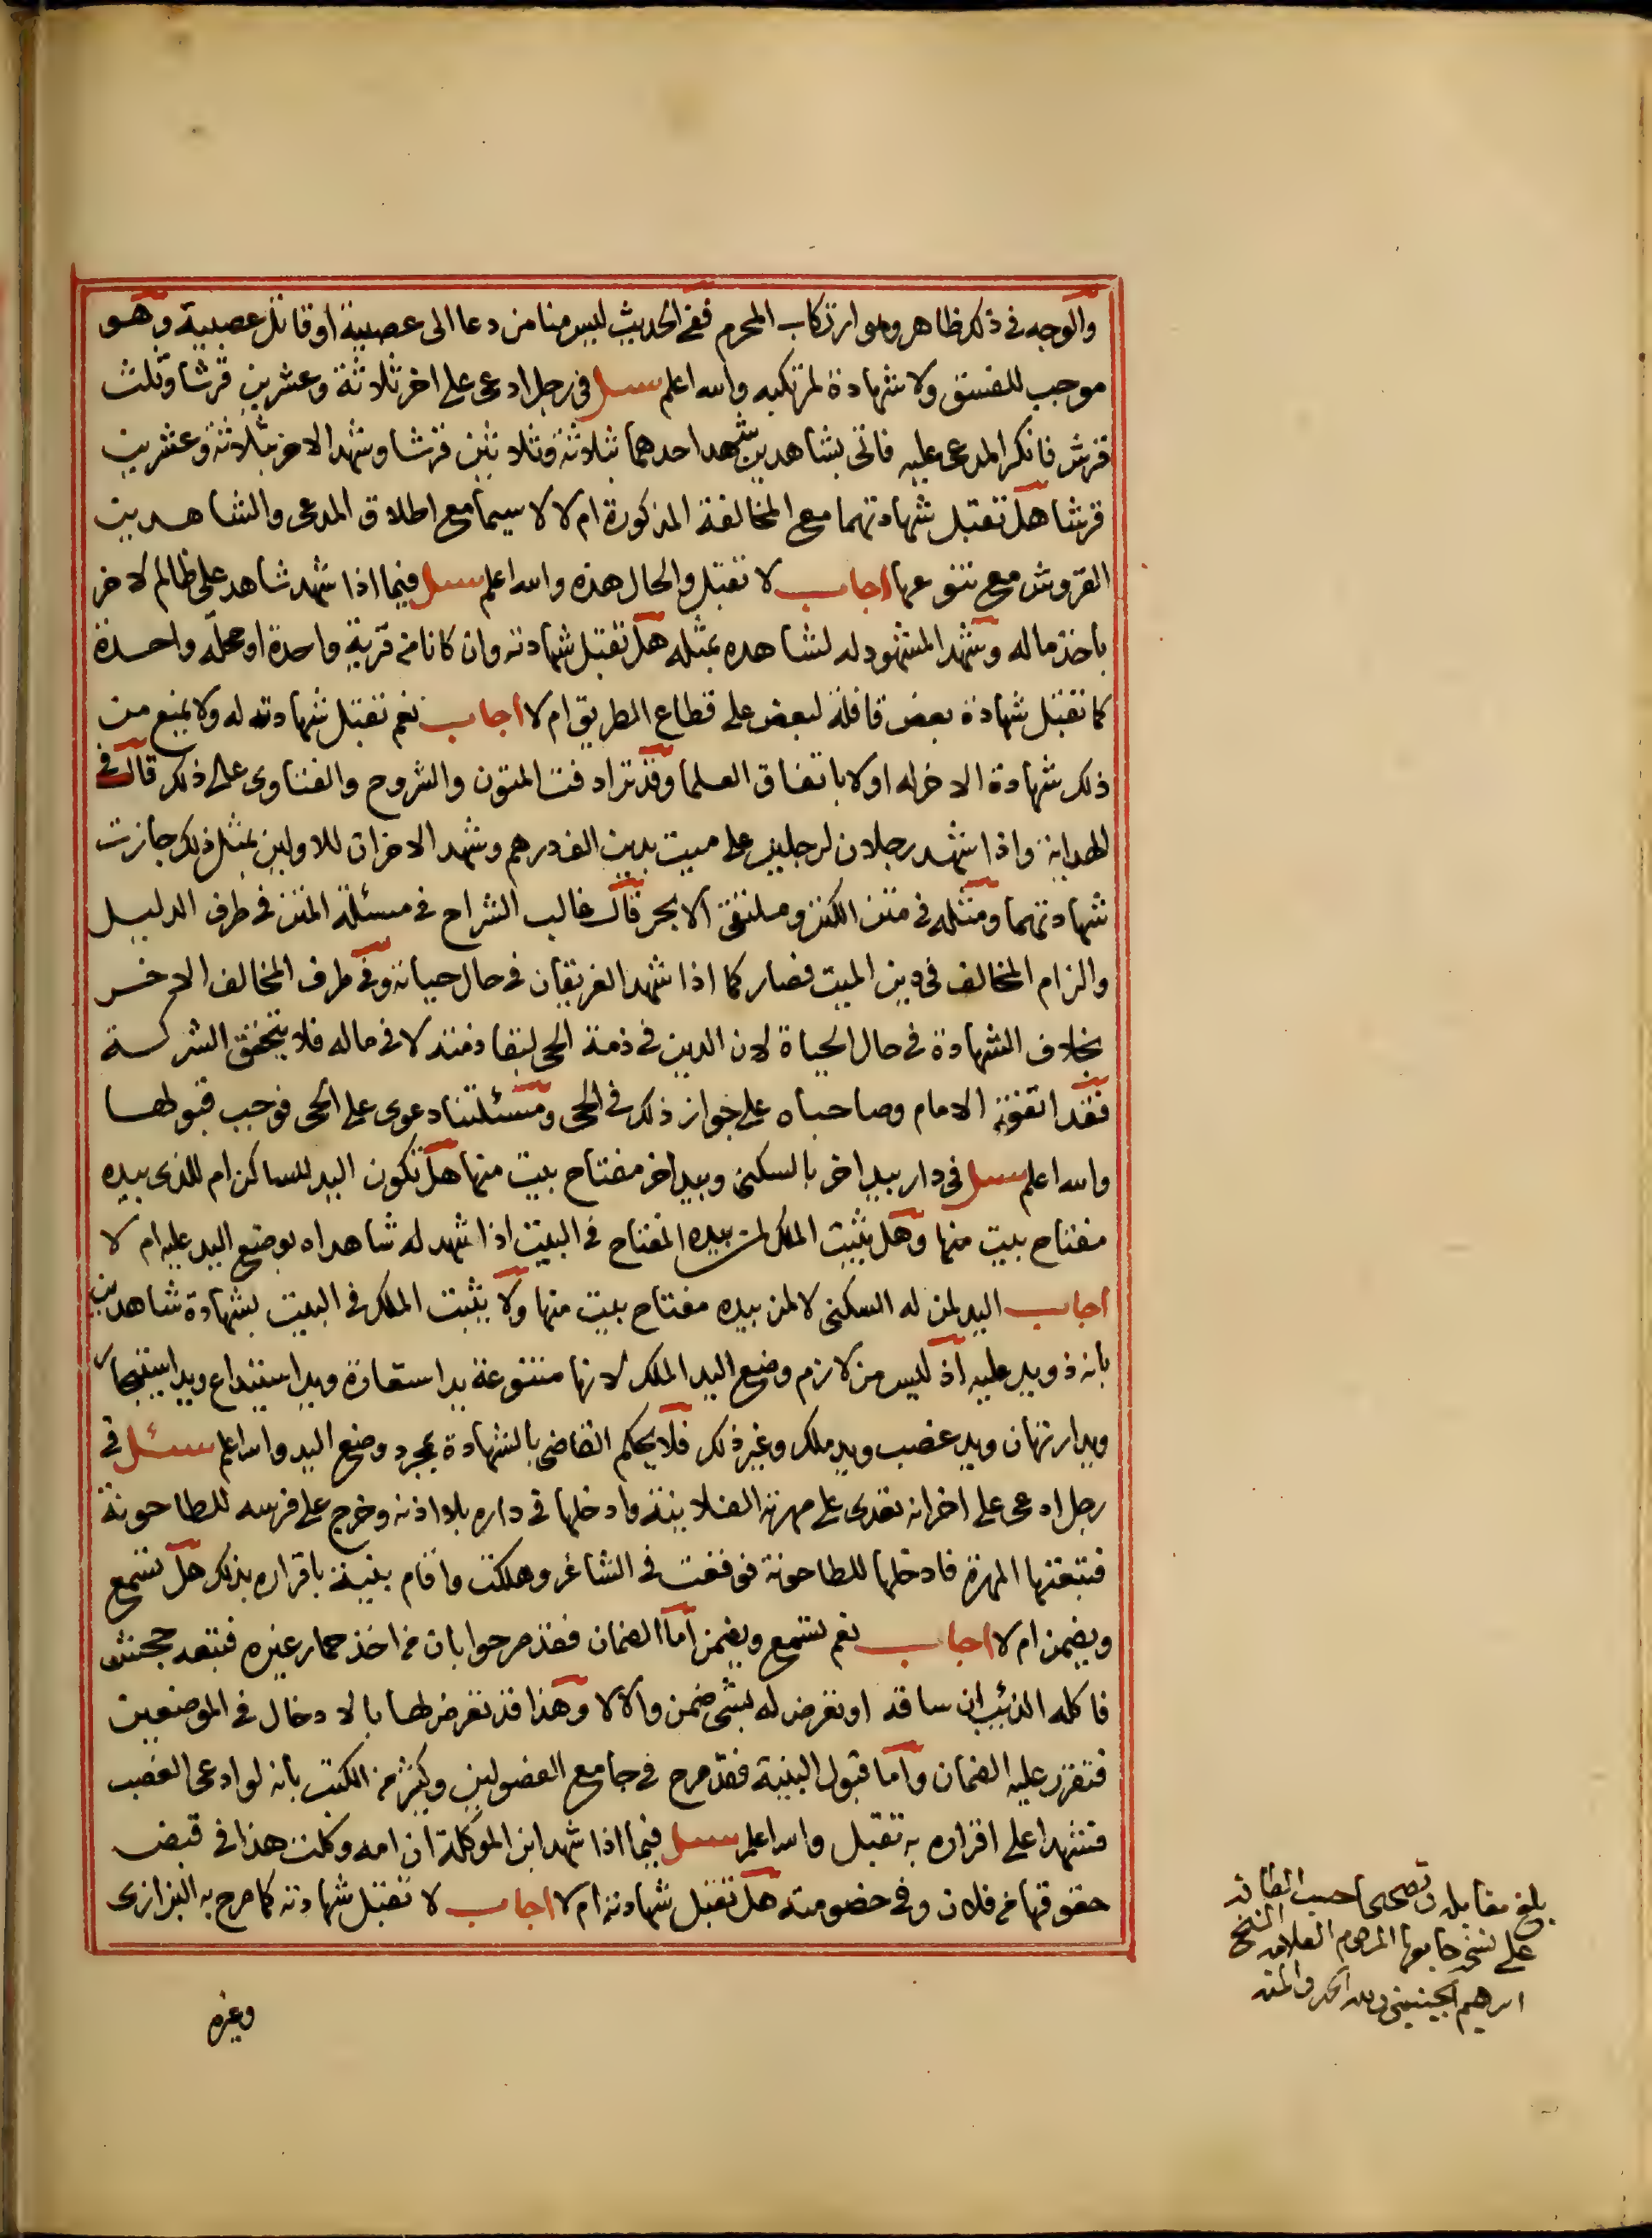 والوجه في ذلك ظاهر وهو ارتكاب المحرم ففي الحديث ليس منا من دعا الى عصبية او قاتل عصبية وهو
موجب للفسق ولا شهادة لمرتكبه والله اعلم سئل في رجل ادعى على اخر ثلاثة وعشرين قرشا وثلث
قرش فانكر المدعى عليه فاتى بشاهدين شهد احدهما بثلاثة وثلاثين قرشا وشهد الاخر بثلاثة وعشرين
قرشا هل تقبل شهادتهما مع المخالفة المذكورة ام لا لا سيما مع اطلاق المدعى والشاهدين
القروش مع تنوعها اجاب لا تقبل والحال هذه والله اعلم سئل فيما اذا شهد شاهد على ظالم لاخر
باخذ ماله وشهد المشهود له لشاهده بمثله هل تقبل شهادته وان كانا من قرية واحدة او محلة واحدة
كما تقبل شهادة بعض قافلة لبعض على قطاع الطريق ام لا اجاب نعم تقبل شهادته له ولا يمنع من
ذلك شهادة الاخر له اولا باتفاق العلما وقد ترادفت المتون والشروح والفتاوى على ذلك قال في
الهداية واذا شهد رجلان لرجلين على ميت بدين الف درهم وشهد الاخران للاولين بمثل ذلك جازت
شهادتهما ومثله في متن الكنز وملتقى الابحر قال غالب الشراح في مسئلة المتن في طرف الدليل
والزام المخالف في دين الميت فصار كما اذا شهد الفريقان في حال حياته وفي طرف المخالف الاخر
بخلاف الشهادة في حال الحياة لان الدين في ذمة الحي لبقاء ذمته لا في ماله فلا يتحقق الشركة
فقد اتفق الامام وصاحباه على جواز ذلك في الحي ومسئلتنا دعوى على الحي فوجب قبولها
والله اعلم سئل في دار بيد اخر بالسكنى وبيد اخر مفتاح بيت منها هل تكون اليد للساكن ام للذي بيده
مفتاح بيت منها وهل يثبت الملك لمن بيده المفتاح في البيت اذا شهد له شاهداه بوضع اليد عليه ام لا
اجاب اليد لمن له السكنى لا لمن بيده مفتاح بيت منها ولا يثبت الملك في البيت بشهادة شاهدين
بانه ذو يد عليه اذ ليس من لازم وضع اليد الملك لانها متنوعة يد استعارة ويد استيداع ويد استيجار
ويد ارتهان ويد غصب ويد ملك وغير ذلك فلا يحكم القاضي بالشهادة بمجرد وضع اليد والله اعلم سئل في
رجل ادعى على اخر انه تعدى على مهرته الفلانية وادخلها في داره بلا اذنه وخرج على فرسه للطاحونة
فتبعتها المهرة فادخلها للطاحونة فوقعت في الشاغر وهلكت واقام بينة باقراره بذلك هل تسمع
ويضمن ام لا اجاب نعم تسمع ويضمن اما الضمان فقد صرحوا بان من اخذ حمار غيره فتبعه جحش
فاكله الذئب ان ساقه او تعرض له بشي ضمن والا لا وهذا قد تعرض لها بالادخال في الموضعين
فتقرر عليه الضمان واما قبول البينة فقد صرح في جامع الفصولين وكثير من الكتب بانه لو ادعى الغصب
فشهدا على اقراره به تقبل والله اعلم سئل فيما اذا شهد ابن الموكلة ان امه وكلت هذا في قبض
حقوقها من فلان وفي خصومته هل تقبل شهادته ام لا اجاب لا تقبل شهادته كما صرح به البزازي
وغيره
بلغ مقابلة وتصحيحا حسب الطاقة
على نسخة جامعها المرحوم العلامة الشيخ
ابرهيم الجينيني ولله الحمد والمنه